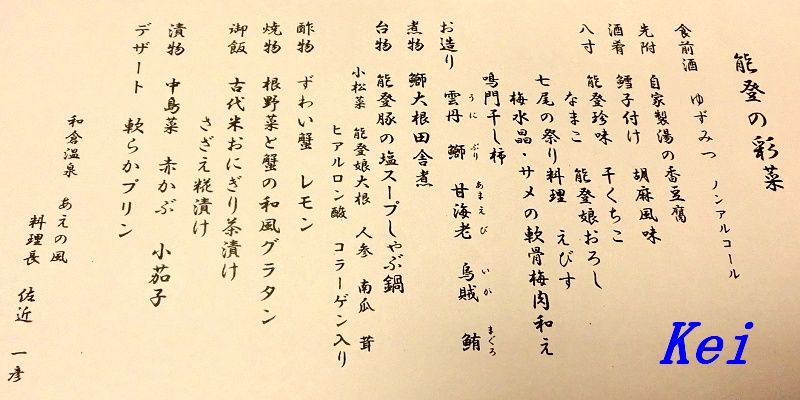 能登の彩菜
食前酒 ゆずみつ ノンアルコール
先附 自家製湯の香豆腐
酒肴 鱈子付け 胡麻風味
能登珍味 干くちこ
八寸 なまこ 能登娘おろし
七尾の祭り料理 えびす
梅水晶・サメの軟骨梅肉和え
鳴門干し柿
お造り 雲丹 鰤 甘海老 烏賊 鮪
うに ぶり あまえび いか まぐろ
煮物 鰤大根田舎煮
台物 能登豚の塩スープしゃぶ鍋
小松菜 能登娘大根 人参 南瓜 茸
ヒアルロン酸 コラーゲン入り
酢物 ずわい蟹 レモン
焼物 根野菜と蟹の和風グラタン
御飯 古代米おにぎり茶漬け
さざえ糀漬け
漬物 中島菜 赤かぶ 小茄子
デザート 軟らかプリン
和倉温泉 あえの風
料理長 佐近 一彦
Kei